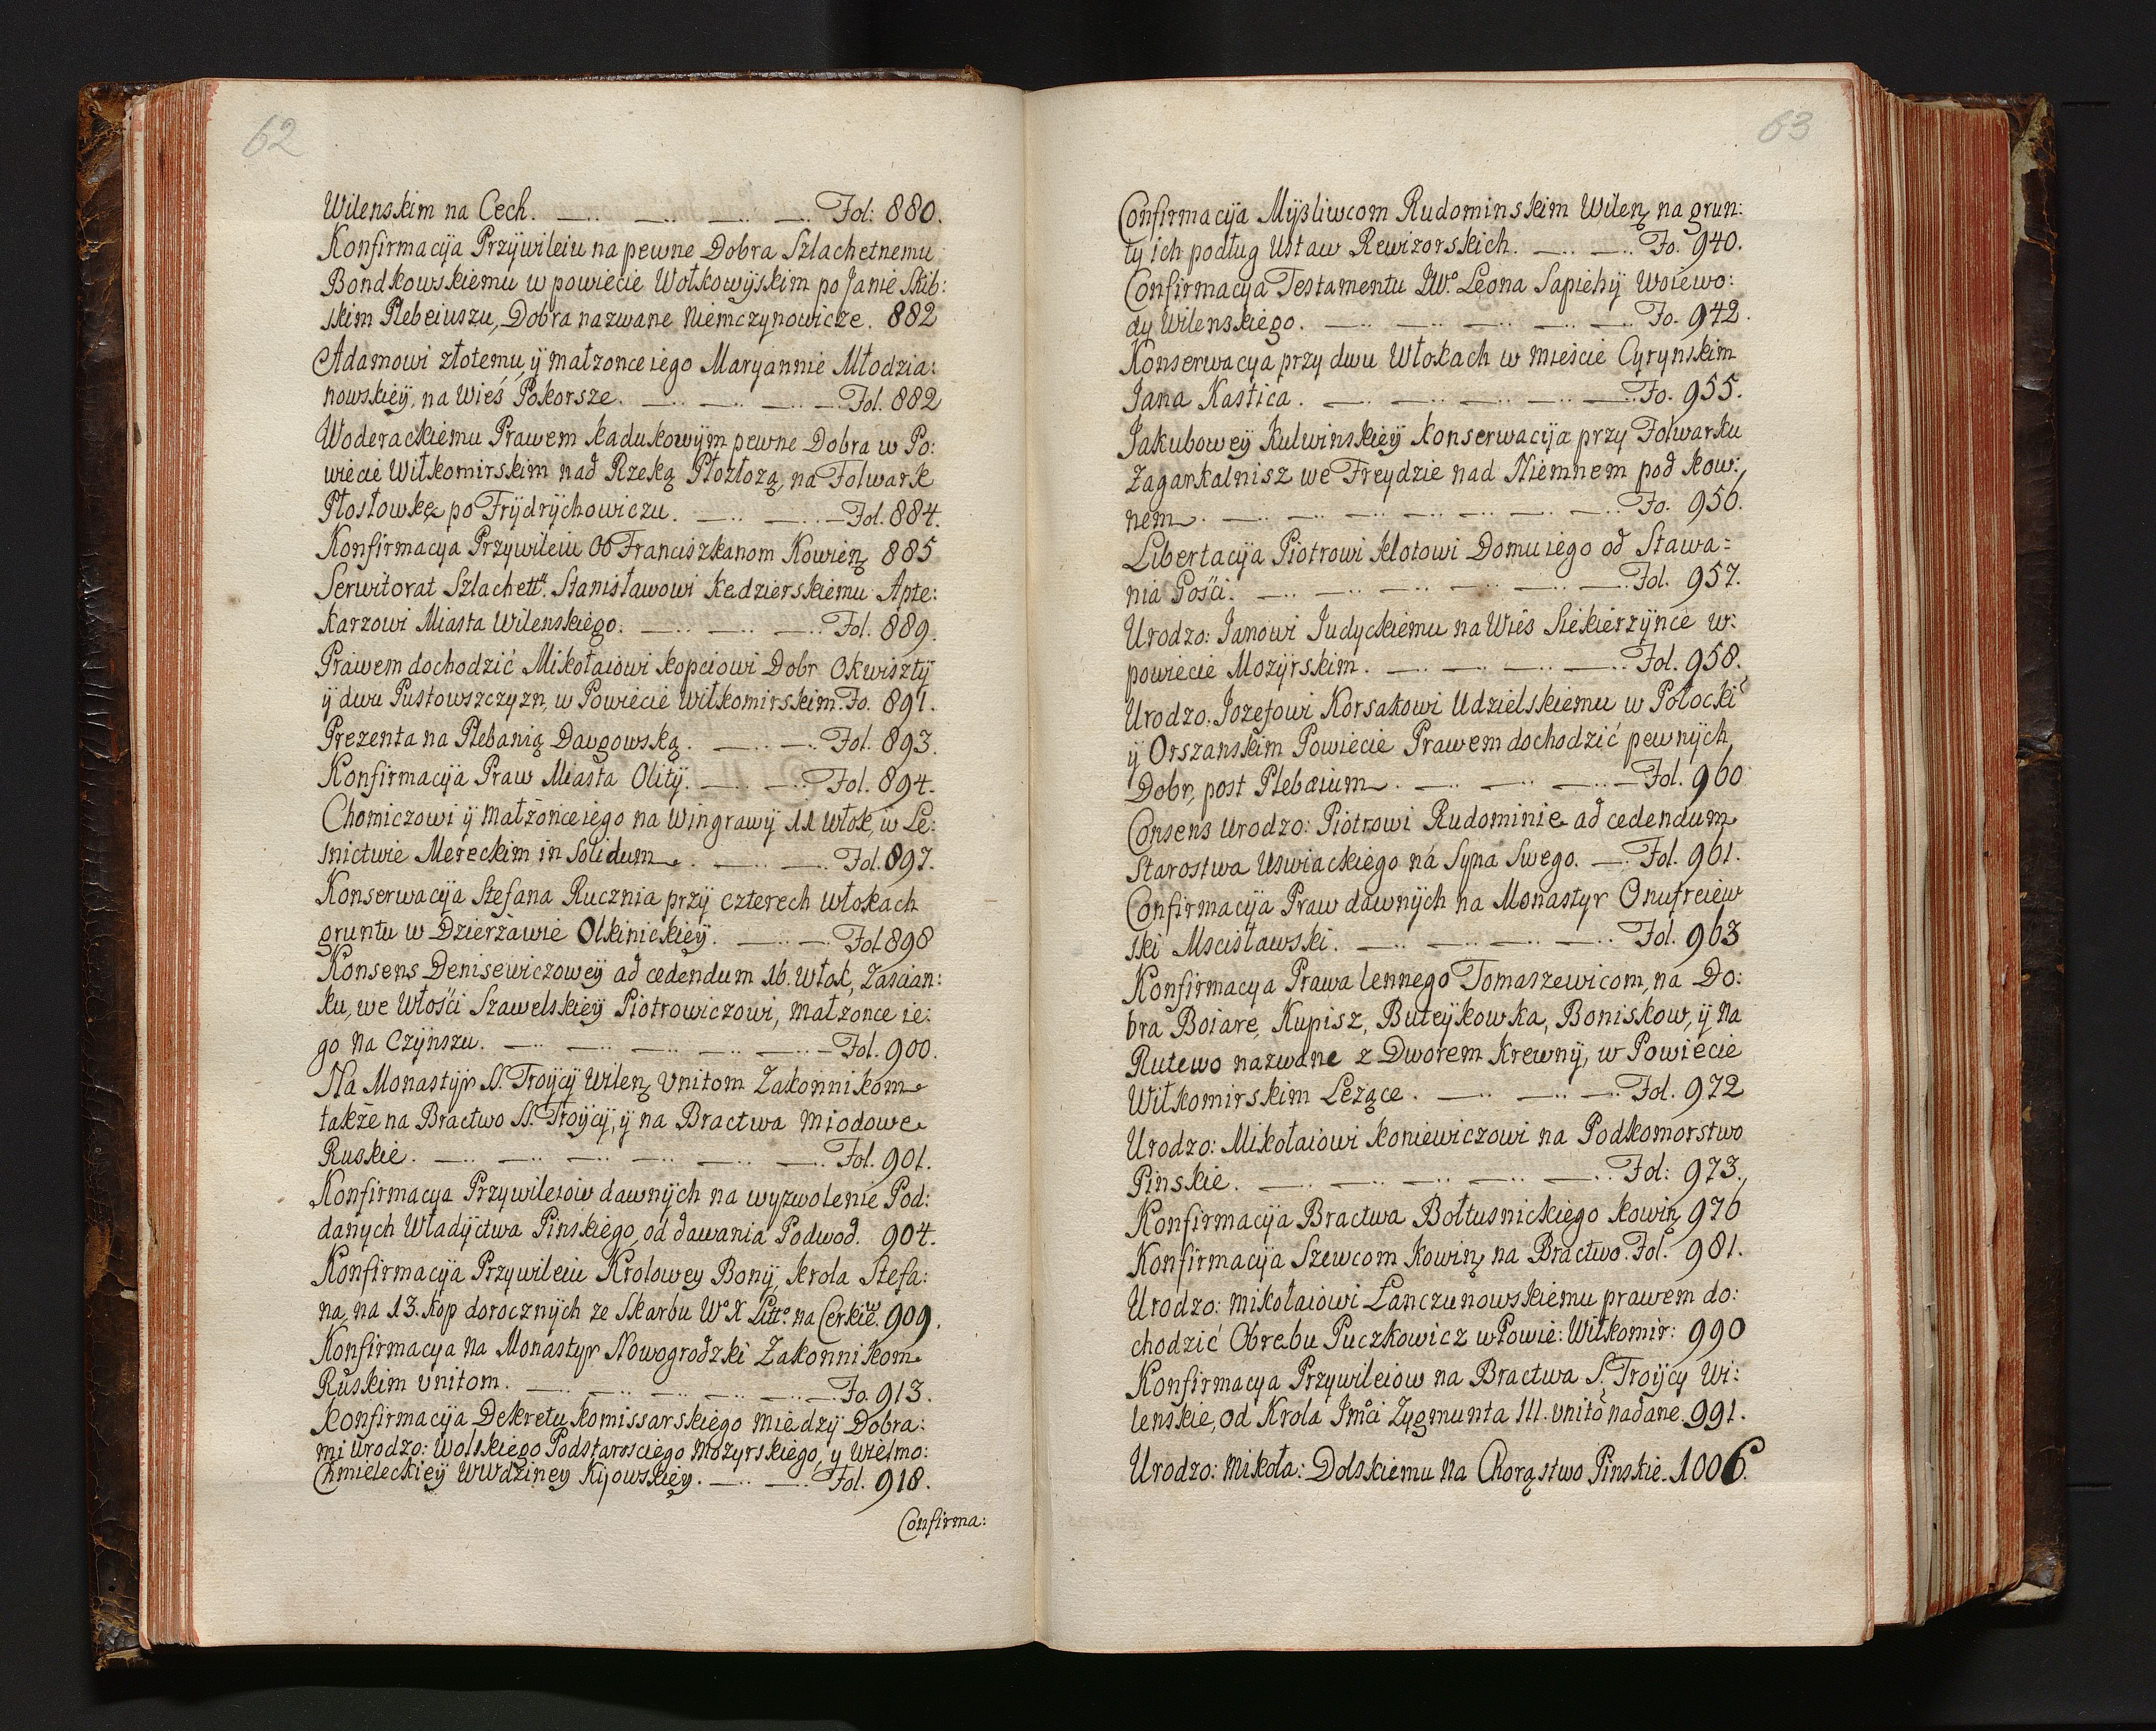 62
Wilenskim na Cech. Fol: 880.
Konfirmacija Przÿwileiu na pewne Dobra Szlachetnemu
Bondkowskiemu w powiecie Wołkowÿskim po Janie Skib:
skim Plebeiuszu, Dobra nazwane Niemczynowicze. 882
Adamowi złotemu, ÿ małzonce iego Maryannie Młodzia:
nowskieÿ, na Wieś Pokorsze. Fol. 882
Woderackiemu Prawem kadukowÿm pewne Dobra w Po:
wiecie Wiłkomirskim nad Rzeką Płoztozą, na Folwark
Płostowkę po Frÿdrÿchowiczu. Fol. 884.
Konfirmacya Przywileiu Oo Franciszkanom Kowien̨ 885
Serwitorat Szlachett. Stanisławowi Kedzierskiemu Apte:
karzowi Miasta Wilenskiego. Fol. 889.
Prawem dochodzić Mikołaiowi Kopciowi Dobr Okwisztÿ
ÿ dwu Pustowszczyzn, w Powiecie Wiłkomirskim. Fo. 891.
Prezenta na Plebanią Daugowską. Fol. 893.
Konfirmacija Praw Miasta Olitÿ. Fol. 894.
Chomiczowi ÿ małżonce iego na Wingrawÿ 11 Włok, w Le:
snictwie Mereckim in Solidum. Fol. 897.
Konserwacija Stefana Rucznia przÿ czterech włokach
gruntu w Dzierżawie Olkinickieÿ. Fol 898
Konsens Denisewiczoweÿ ad cedendum 16. Włok, Zascian:
ku, we Włości Szawelskieÿ Piotrowiczowi, małzonce ie:
go na Czÿnszu. Fol. 900.
Na Monastÿr SS. Troÿcÿ Wilen̨ Unitom Zakonnikom
także na Bractwo SS. Troÿcÿ, ÿ na Bractwa Miodowe
Ruskie. Fol. 901.
Konfirmacya Przywileiow dawnÿch na wyzwolenie Pod:
danych Władÿctwa Pinskiego, od dawania Podwod. 904.
Konfirmacija Przywileiu Krolowey Bonÿ, Krola Stefa:
na, na 13. Kop dorocznÿch ze Skarbu Wo X Litto na Cerkiew. 909.
Konfirmacya na Monastyr Nowogrodzki Zakonnikom
Ruskim Unitom. Fo. 913.
Konfirmacija Dekretu Komissarskiego miedzÿ Dobra:
mi Urodzo: Wolskiego Podstarosciego Mozyrskiego, y Wielmo:
Chmieleckieÿ WWdziney Kijowskiey. Fol. 918.
Confirma:
63
Confirmacija Mÿßliwcom Rudominskim Wilen̨ na grun:
tÿ ich podług Ustaw Rewizorskich. Fo. 940.
Confirmacÿa Testamentu JWo Leona Sapiehÿ Woiewo:
dy Wilenskiego. Fo. 942.
Konserwacya przy dwu Włokach w Mieście Cyrynskim
Jana Kastica. Fo. 955.
Jakubowey Kulwinskieÿ Konserwacija przy Folwarku
Zagankalnisz we Freydzie nad Niemnem pod Kow:
nem. Fo. 956.
Libertacija Piotrowi Klotowi Domu iego od Stawa:
nia Gości. Fol. 957.
Urodzo: Janowi Judyckiemu na Wieś Siekierzÿnce w:
powiecie Mozÿrskim. Fol. 958.
Urodzo. Jozefowi Korsakowi Udzielskiemu w Połocki
ÿ Orszanskim Powiecie Prawem dochodzić pewnÿch
Dobr, post Plebæium. Fol. 960
Consens Urodzo: Piotrowi Rudominie ad cedendum
Starostwa Uswiackiego na Syna Swego. Fol. 961.
Confirmacija Praw dawnÿch na Monastyr Onufreiew
ski Mscisławski. Fol. 963
Konfirmacya Prawa lennego Tomaszewicom, na Do:
bra Boiare, Kupisz, Buteÿkowka, Boniskow, ÿ na
Rutewo nazwane z Dworem Krewnÿ, w Powiecie
Wiłkomirskim Lezące. Fol. 972
Urodzo: Mikołaiowi Koniewiczowi na Podkomorstwo
Pinskie. Fol: 973.
Konfirmacija Bractwa Bołtusnickiego Kowin̨ 976
Konfirmacija Szewcom Kowin̨ na Bractwo. Fol. 981.
Urodzo: Mikołaiowi Lanczunowskiemu prawem do:
chodzić Obrebu Puczkowicz w Powie: Wiłkomir: 990
Konfirmacya Przywileiow na Bractwa S. Troÿcy Wi:
lenskie, od Krola Jmci Zygmunta III. Unito nadane. 991.
Urodzo: Mikoła: Dolskiemu na Chorąstwo Pinskie. 1006.